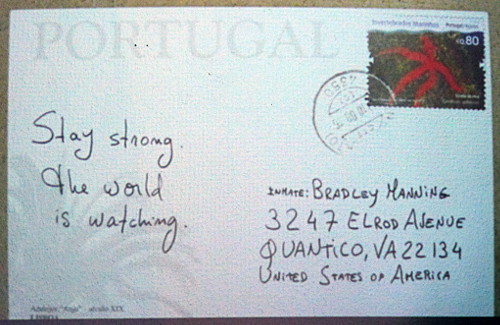 PORTUGAL
Invertebrados Marinhos Portugal
€0,80
4350
Stay strong.
The world
is watching.
INMATE: BRADLEY MANNING
3247 ELROD AVENUE
QUANTICO, VA 22134
UNITED STATES OF AMERICA
Azulejos "Anjo" - século XIX
LISBOA